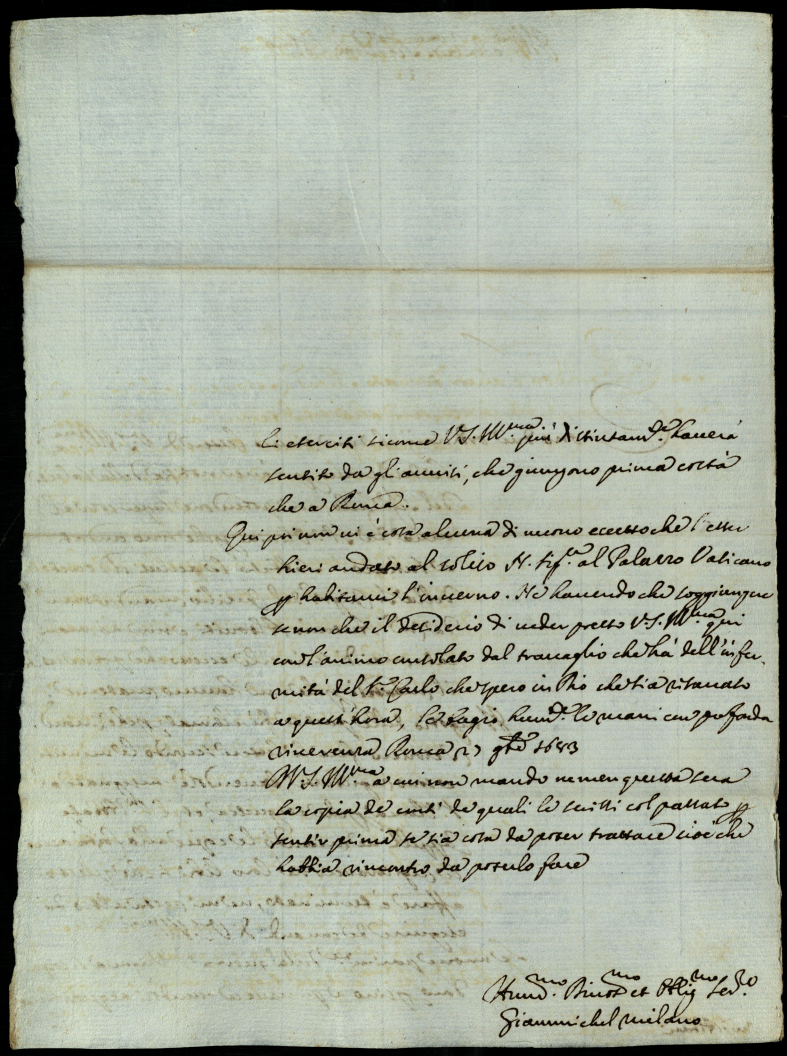 li eserciti sicome V.S. Ill.ma più distintam.te haverà
sentito da gli avvisi, che giungono prima costà
che a Roma.
Qui poi non vi è cosa alcuna di nuovo eccetto che l'esser
hieri andato al solito N. Sig.re al Palazzo Vaticano
p habitarvi l'inverno. Nè havendo che soggiungere
senon che il desiderio di veder presto V.S. Ill.ma qui
con l'animo consolato dal travaglio che hà dell'infer-
mità del S.r Carlo che spero in Dio che sia risanato
a quest'hora, le bagio hum.te le mani con profonda
riverenza Roma 27 9bre 1683
A V.S. Ill.ma a cui non mando nemen questa sera
la copia de conti de quali le scrissi col passato p
sentir prima se sia cosa da poter trattare cioè che
habbia rincontro da poterlo fare
Hum.mo Div.mo et Oblig.mo Ser.re
Giannichel Milano